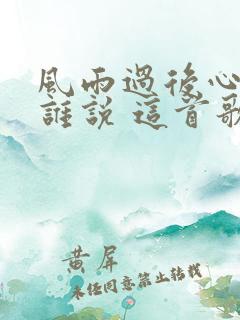 風雨過後心
誰說 這首歌
黄屏
未经同意禁止转载